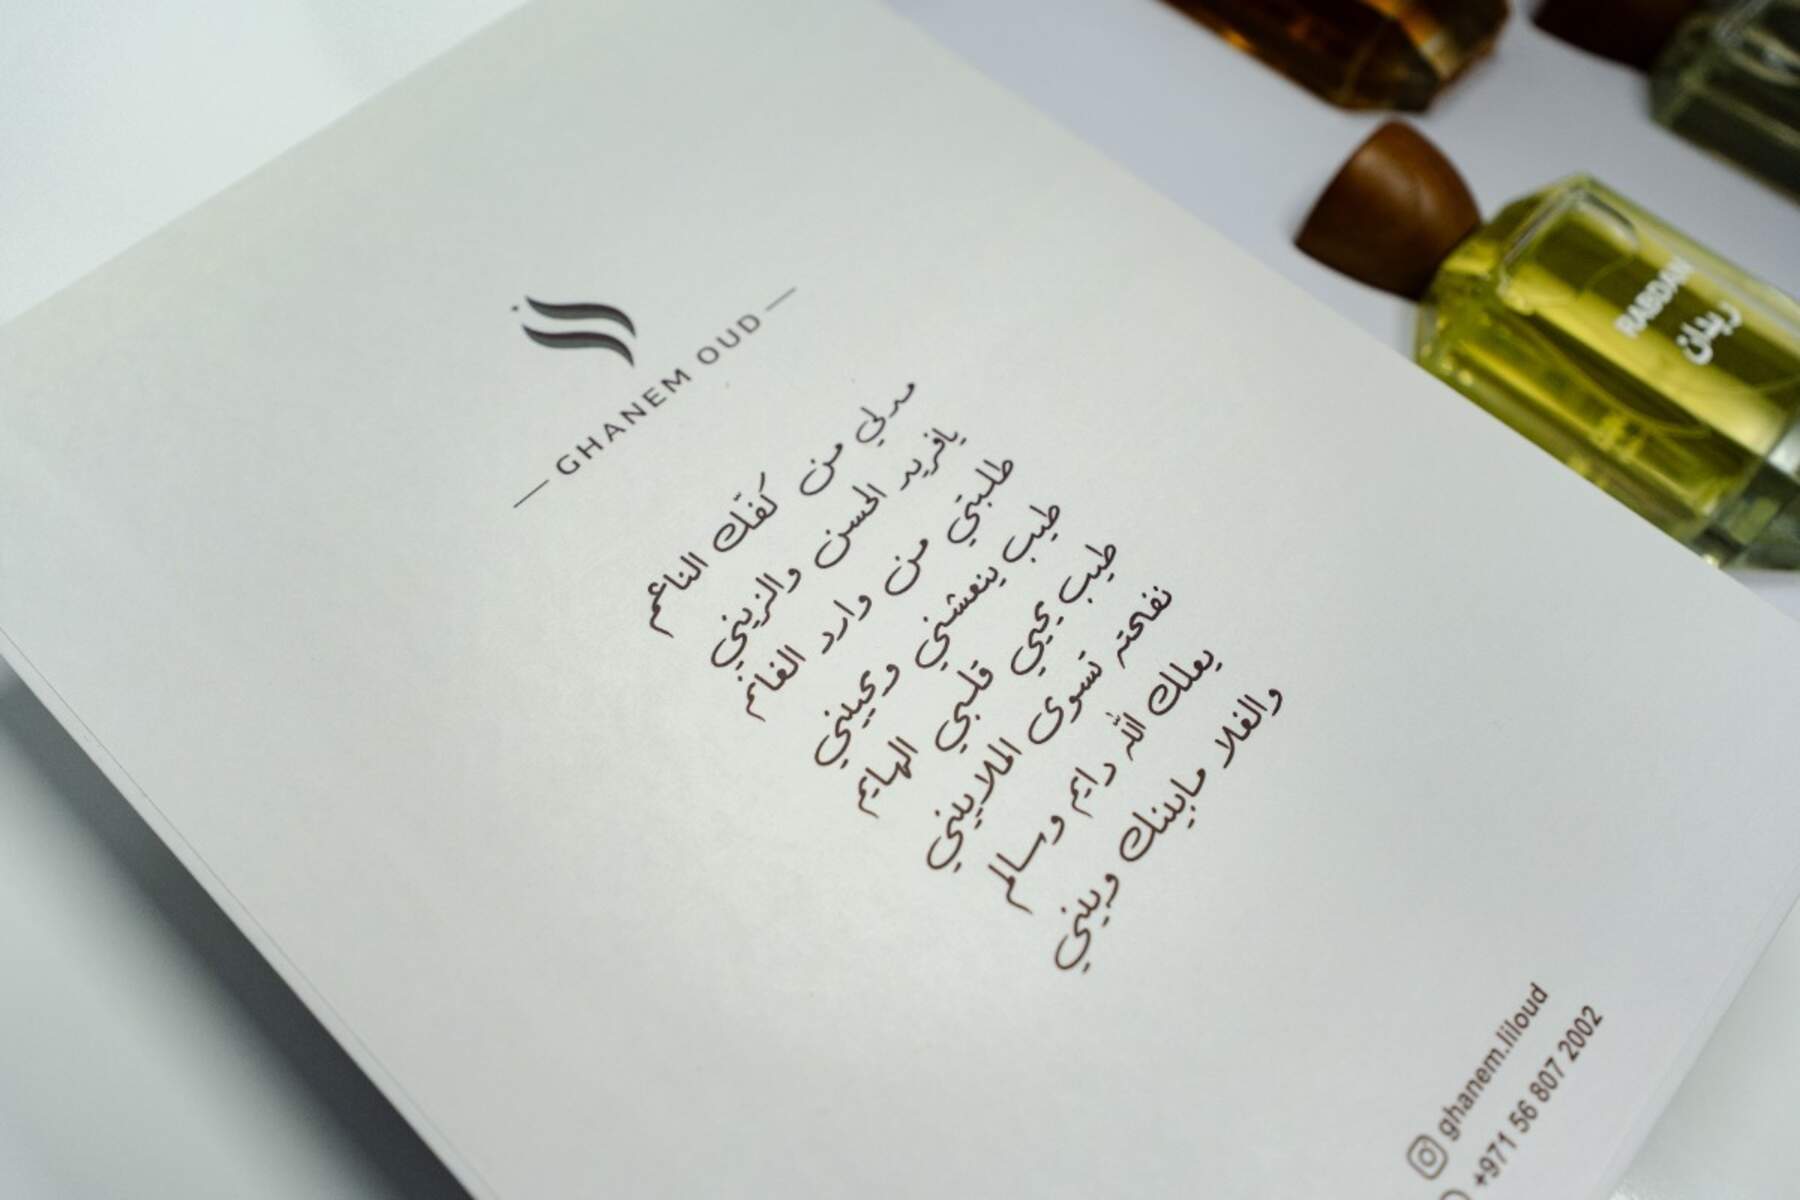 GHANEM OUD
مدلي من كفّك الناعم
يافريد الحسن والزيني
طلبتي من وارد الغانم
طيب ينعشني ويحييني
طيب يحيي قلبي الهايم
نفحته تسوى الملاييني
يعلك الله دايم وسالم
والغلا مابينك وبيني
ghanem.liloud
+971 56 807 2002
RABDAN
ربدان